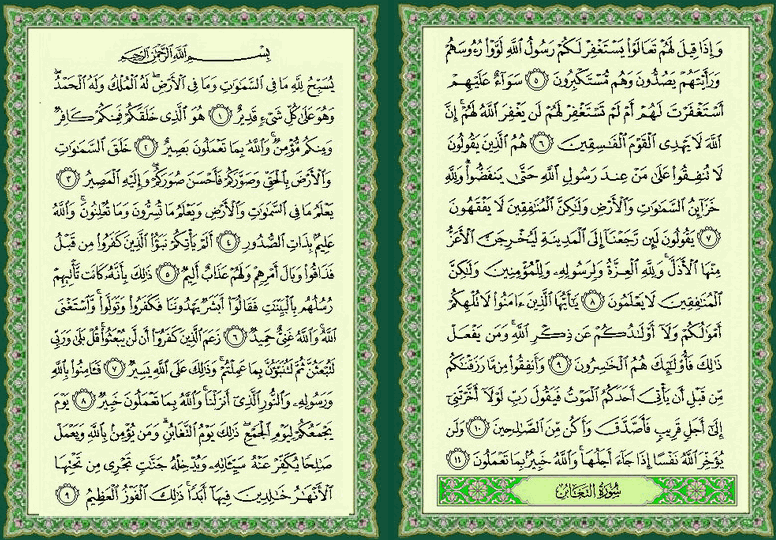 وَإِذَا قِيلَ لَهُمْ تَعَالَوْا۟ يَسْتَغْفِرْ لَكُمْ رَسُولُ ٱللَّهِ لَوَّوْا۟ رُءُوسَهُمْ
وَرَأَيْتَهُمْ يَصُدُّونَ وَهُم مُّسْتَكْبِرُونَ ٥ سَوَآءٌ عَلَيْهِمْ
أَسْتَغْفَرْتَ لَهُمْ أَمْ لَمْ تَسْتَغْفِرْ لَهُمْ لَن يَغْفِرَ ٱللَّهُ لَهُمْ ۚ إِنَّ
ٱللَّهَ لَا يَهْدِى ٱلْقَوْمَ ٱلْفَـٰسِقِينَ ٦ هُمُ ٱلَّذِينَ يَقُولُونَ
لَا تُنفِقُوا۟ عَلَىٰ مَنْ عِندَ رَسُولِ ٱللَّهِ حَتَّىٰ يَنفَضُّوا۟ ۗ وَلِلَّهِ
خَزَآئِنُ ٱلسَّمَـٰوَٰتِ وَٱلْأَرْضِ وَلَـٰكِنَّ ٱلْمُنَـٰفِقِينَ لَا يَفْقَهُونَ
٧ يَقُولُونَ لَئِن رَّجَعْنَآ إِلَى ٱلْمَدِينَةِ لَيُخْرِجَنَّ ٱلْأَعَزُّ
مِنْهَا ٱلْأَذَلَّ ۚ وَلِلَّهِ ٱلْعِزَّةُ وَلِرَسُولِهِۦ وَلِلْمُؤْمِنِينَ وَلَـٰكِنَّ
ٱلْمُنَـٰفِقِينَ لَا يَعْلَمُونَ ٨ يَـٰٓأَيُّهَا ٱلَّذِينَ ءَامَنُوا۟ لَا تُلْهِكُمْ
أَمْوَٰلُكُمْ وَلَآ أَوْلَـٰدُكُمْ عَن ذِكْرِ ٱللَّهِ ۚ وَمَن يَفْعَلْ
ذَٰلِكَ فَأُو۟لَـٰٓئِكَ هُمُ ٱلْخَـٰسِرُونَ ٩ وَأَنفِقُوا۟ مِن مَّا رَزَقْنَـٰكُم
مِّن قَبْلِ أَن يَأْتِىَ أَحَدَكُمُ ٱلْمَوْتُ فَيَقُولَ رَبِّ لَوْلَآ أَخَّرْتَنِىٓ
إِلَىٰٓ أَجَلٍ قَرِيبٍ فَأَصَّدَّقَ وَأَكُن مِّنَ ٱلصَّـٰلِحِينَ ١٠ وَلَن
يُؤَخِّرَ ٱللَّهُ نَفْسًا إِذَا جَآءَ أَجَلُهَا ۚ وَٱللَّهُ خَبِيرٌۢ بِمَا تَعْمَلُونَ ١١
سُورَةُ التَّغَابُنِ
بِسْمِ ٱللَّهِ ٱلرَّحْمَـٰنِ ٱلرَّحِيمِ
يُسَبِّحُ لِلَّهِ مَا فِى ٱلسَّمَـٰوَٰتِ وَمَا فِى ٱلْأَرْضِ ۖ لَهُ ٱلْمُلْكُ وَلَهُ ٱلْحَمْدُ ۖ
وَهُوَ عَلَىٰ كُلِّ شَىْءٍ قَدِيرٌ ١ هُوَ ٱلَّذِى خَلَقَكُمْ فَمِنكُمْ كَافِرٌ
وَمِنكُم مُّؤْمِنٌ ۚ وَٱللَّهُ بِمَا تَعْمَلُونَ بَصِيرٌ ٢ خَلَقَ ٱلسَّمَـٰوَٰتِ
وَٱلْأَرْضَ بِٱلْحَقِّ وَصَوَّرَكُمْ فَأَحْسَنَ صُوَرَكُمْ ۖ وَإِلَيْهِ ٱلْمَصِيرُ ٣
يَعْلَمُ مَا فِى ٱلسَّمَـٰوَٰتِ وَٱلْأَرْضِ وَيَعْلَمُ مَا تُسِرُّونَ وَمَا تُعْلِنُونَ ۚ وَٱللَّهُ
عَلِيمٌۢ بِذَاتِ ٱلصُّدُورِ ٤ أَلَمْ يَأْتِكُمْ نَبَؤُا۟ ٱلَّذِينَ كَفَرُوا۟ مِن قَبْلُ
فَذَاقُوا۟ وَبَالَ أَمْرِهِمْ وَلَهُمْ عَذَابٌ أَلِيمٌ ٥ ذَٰلِكَ بِأَنَّهُۥ كَانَت تَّأْتِيهِمْ
رُسُلُهُم بِٱلْبَيِّنَـٰتِ فَقَالُوٓا۟ أَبَشَرٌ يَهْدُونَنَا فَكَفَرُوا۟ وَتَوَلَّوا۟ ۚ وَّٱسْتَغْنَى
ٱللَّهُ ۚ وَٱللَّهُ غَنِىٌّ حَمِيدٌ ٦ زَعَمَ ٱلَّذِينَ كَفَرُوٓا۟ أَن لَّن يُبْعَثُوا۟ ۚ قُلْ بَلَىٰ وَرَبِّى
لَتُبْعَثُنَّ ثُمَّ لَتُنَبَّؤُنَّ بِمَا عَمِلْتُمْ ۚ وَذَٰلِكَ عَلَى ٱللَّهِ يَسِيرٌ ٧ فَـَٔامِنُوا۟ بِٱللَّهِ
وَرَسُولِهِۦ وَٱلنُّورِ ٱلَّذِىٓ أَنزَلْنَا ۚ وَٱللَّهُ بِمَا تَعْمَلُونَ خَبِيرٌ ٨ يَوْمَ
يَجْمَعُكُمْ لِيَوْمِ ٱلْجَمْعِ ۖ ذَٰلِكَ يَوْمُ ٱلتَّغَابُنِ ۗ وَمَن يُؤْمِنۢ بِٱللَّهِ وَيَعْمَلْ
صَـٰلِحًا يُكَفِّرْ عَنْهُ سَيِّـَٔاتِهِۦ وَيُدْخِلْهُ جَنَّـٰتٍ تَجْرِى مِن تَحْتِهَا
ٱلْأَنْهَـٰرُ خَـٰلِدِينَ فِيهَآ أَبَدًا ۚ ذَٰلِكَ ٱلْفَوْزُ ٱلْعَظِيمُ ٩